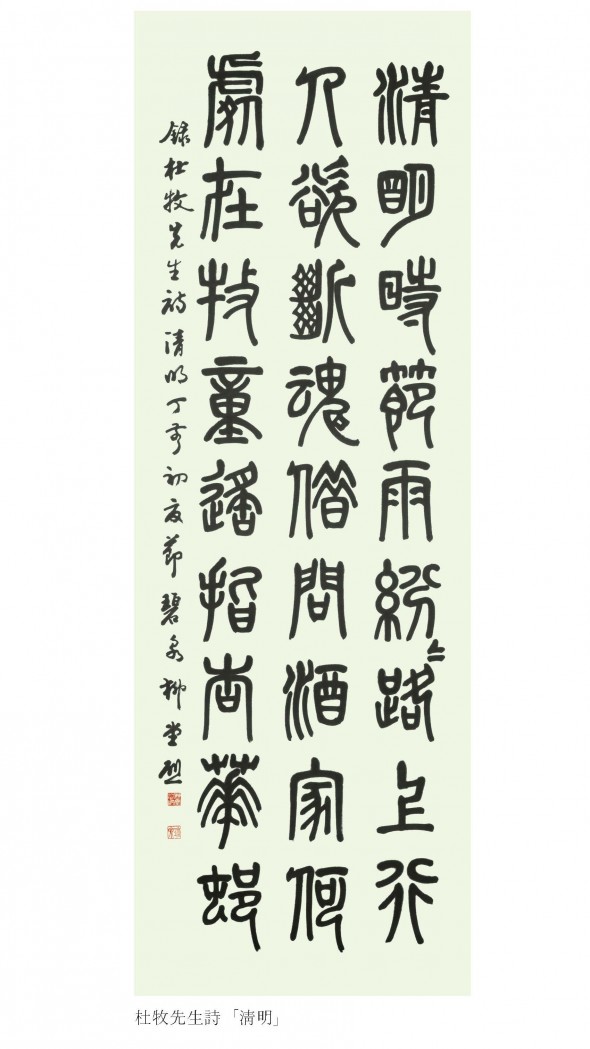 清明時節雨紛〻路上行
人欲斷魂借問酒家何
處在牧童遙指杏華邨
錄杜牧先生詩清明丁亥初夏節碧泉柳堂烈
杜牧先生詩「淸明」